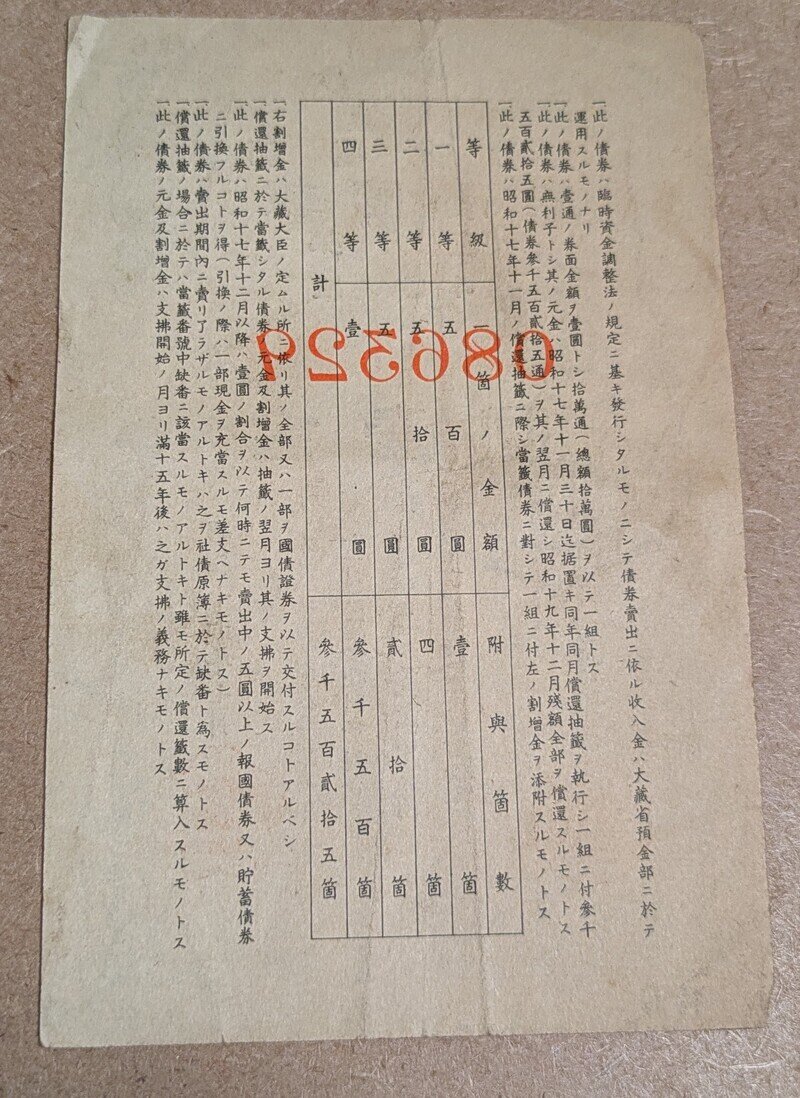 一此ノ債券ハ臨時資金調整法ノ規定ニ基キ發行シタルモノニシテ債券賣出ニ依ル收入金ハ大藏省預金部ニ於テ
運用スルモノナリ
一此ノ債券ハ壹通ノ券面金額ヲ壹圓トシ拾萬通(總額拾萬圓)ヲ以テ一組トス
一此ノ債券ハ無利子トシ其ノ元金ハ昭和十七年十一月三十日迄据置キ同年同月償還抽籤ヲ執行シ一組ニ付參千
五百貳拾五圓(債券參千五百貳拾五通)ヲ其ノ翌月ニ償還シ昭和十九年十二月殘額全部ヲ償還スルモノトス
一此ノ債券ハ昭和十七年十一月ノ償還抽籤ニ際シ當籤債券ニ對シテ一組ニ付左ノ割增金ヲ添附スルモノトス
等級 一箇ノ金額 附與箇數
一等 五百圓 壹箇
二等 五拾圓 四箇
三等 五圓 貳拾箇
四等 壹圓 參千五百箇
計 參千五百貳拾五箇
一右割增金ハ大藏大臣ノ定ムル所ニ依リ其ノ全部又ハ一部ヲ國債證券ヲ以テ交付スルコトアルベシ
一償還抽籤ニ於テ當籤シタル債券ノ元金及割增金ハ抽籤ノ翌月ヨリ其ノ支拂ヲ開始ス
一此ノ債券ハ昭和十七年十二月以降ハ壹圓ノ割合ヲ以テ何時ニテモ賣出中ノ五圓以上ノ報國債券又ハ貯蓄債券
ニ引換フルコトヲ得(引換ノ際ハ一部現金ヲ充當スルモ差支ヘナキモノトス)
一此ノ債券ハ賣出期間內ニ賣リ了ラザルモノアルトキハ之ヲ社債原簿ニ於テ缺番ト爲スモノトス
一償還抽籤ノ場合ニ於テハ當籤番號中缺番ニ該當スルモノアルトキト雖モ所定ノ償還籤數ニ算入スルモノトス
一此ノ債券ノ元金及割增金ハ支拂開始ノ月ヨリ滿十五年後ハ之ガ支拂ノ義務ナキモノトス
086329